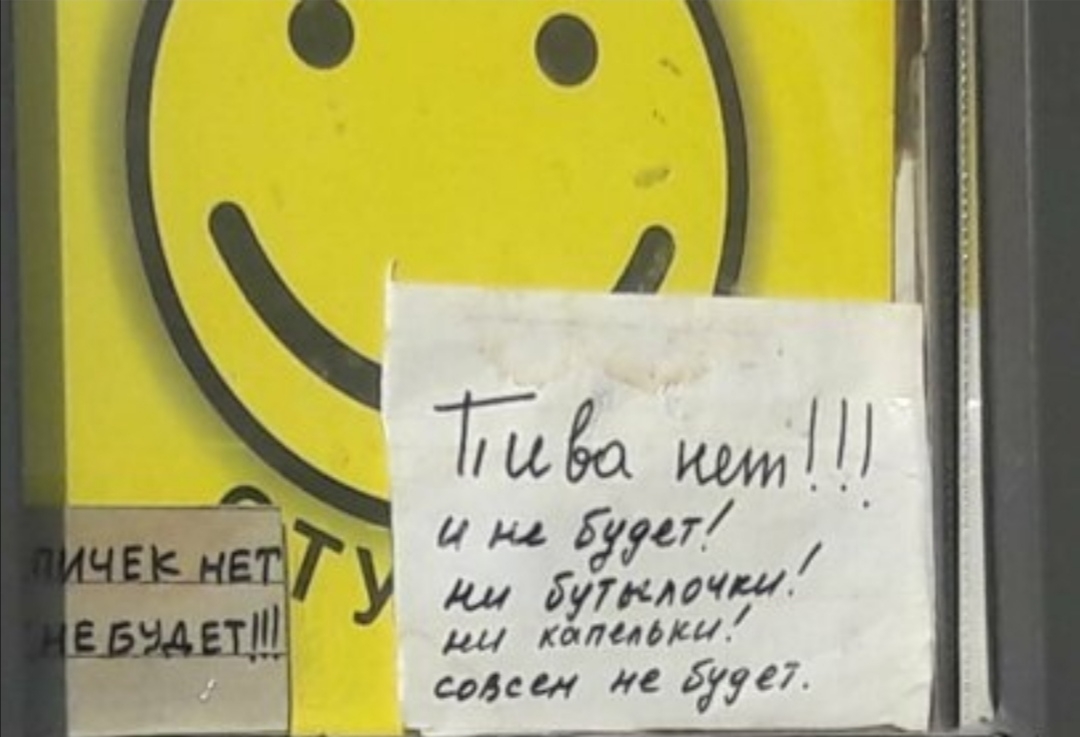 ПИЧЕК НЕТ
НЕ БУДЕТ!!!
ТУ
Пива нет!!!
и не будет!
ни бутылочки!
ни капельки!
совсем не будет.